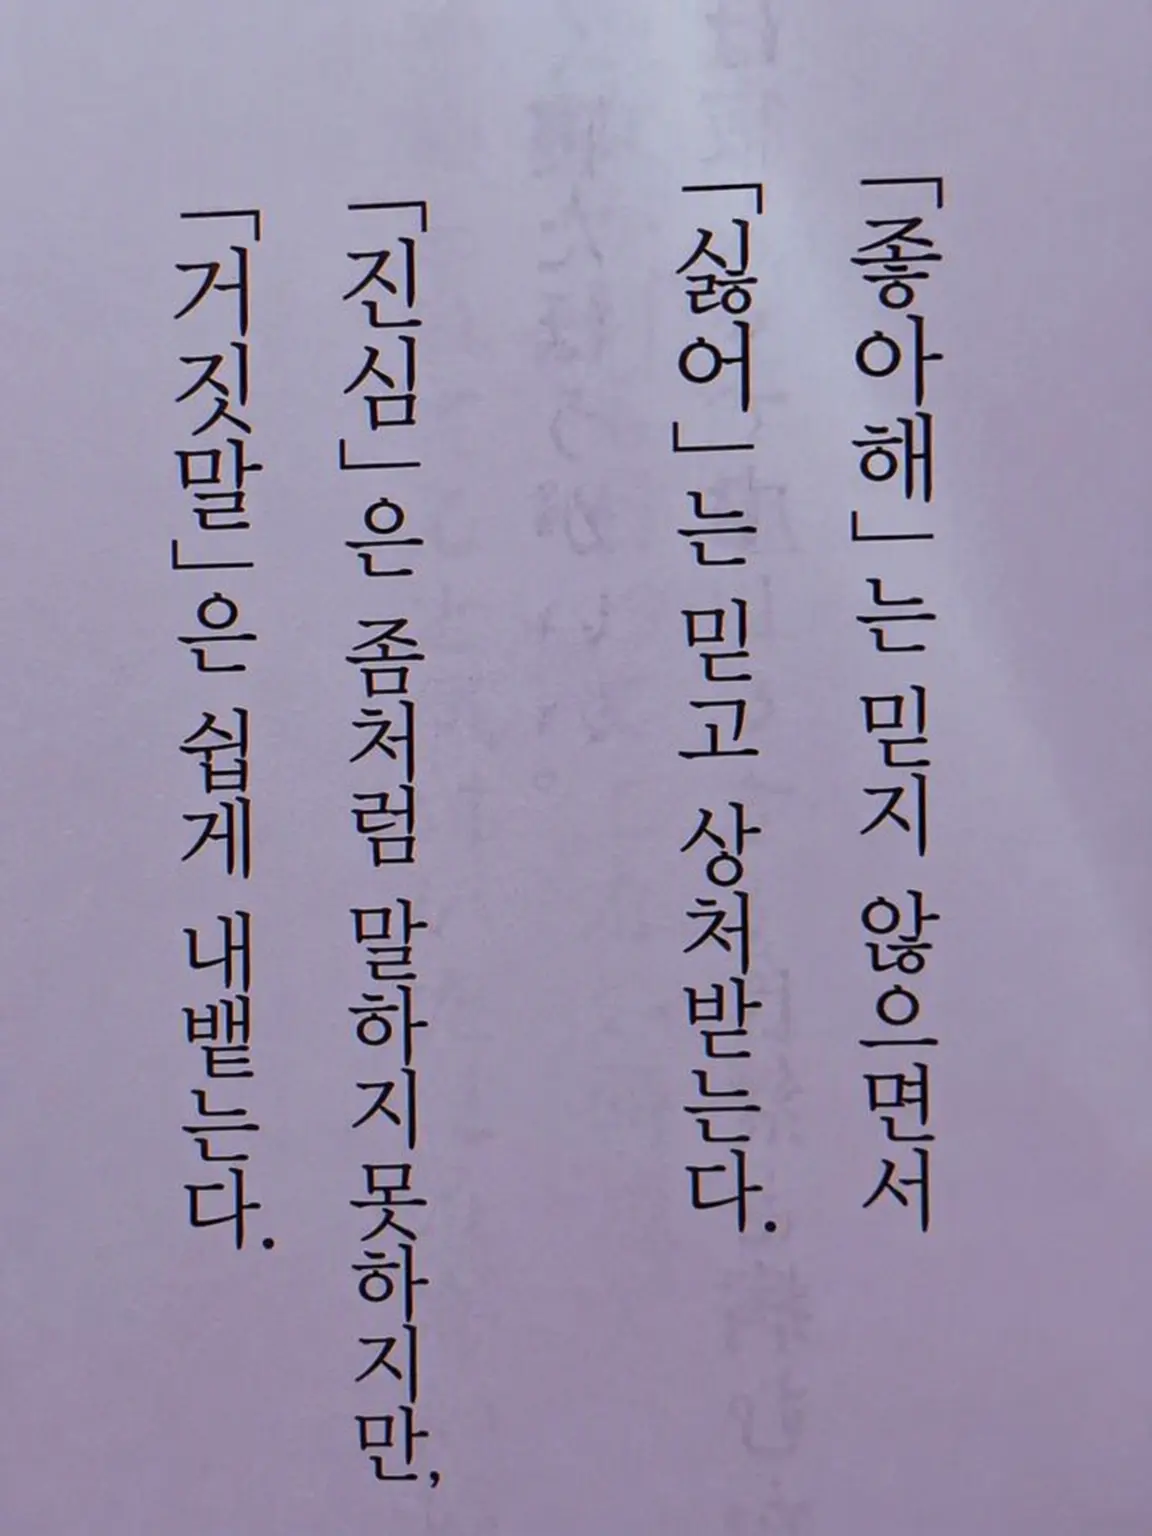 「좋아해」는 믿지 않으면서
「싫어」는 믿고 상처받는다.
「진심」은 좀처럼 말하지 못하지만,
「거짓말」은 쉽게 내뱉는다.